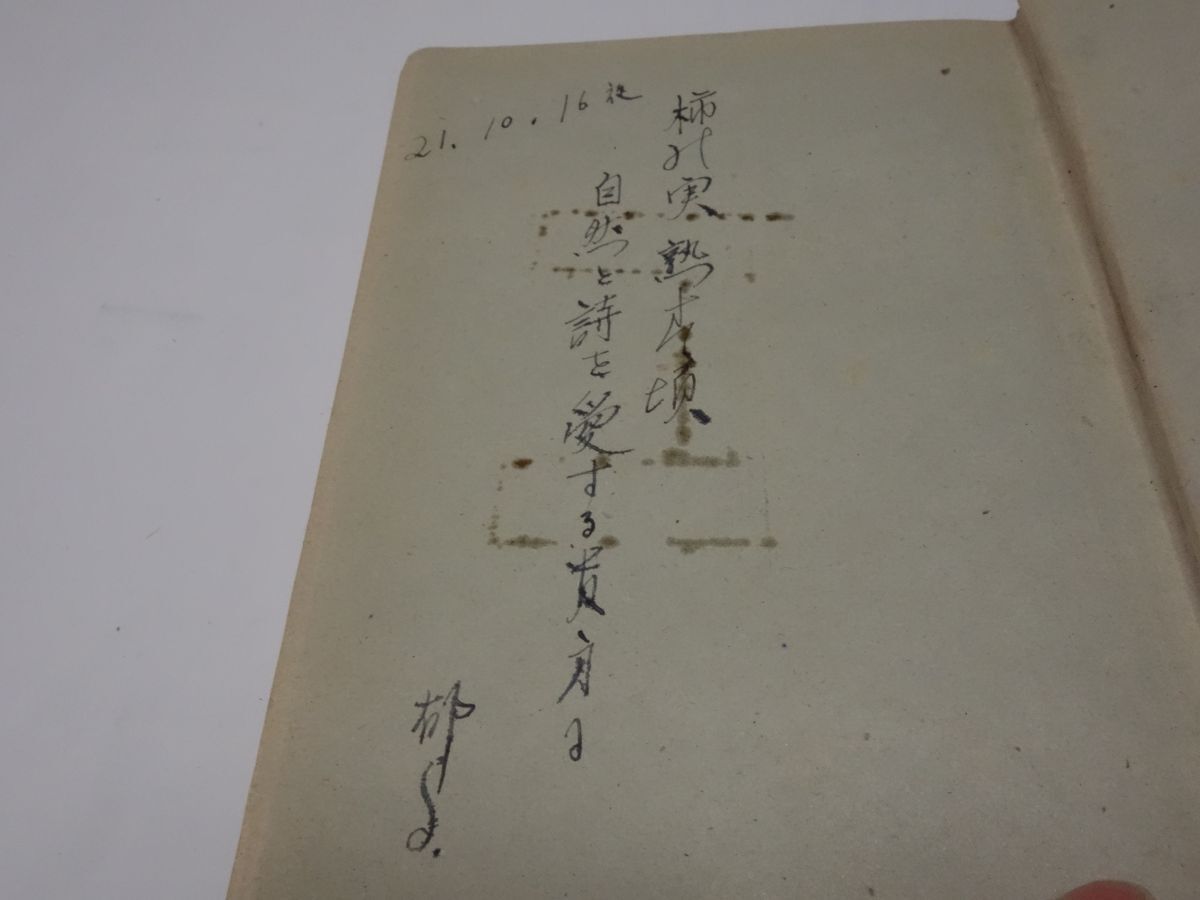 柿の実熟す頃
自然と詩を愛する貴方に
21.10.16夜
郁